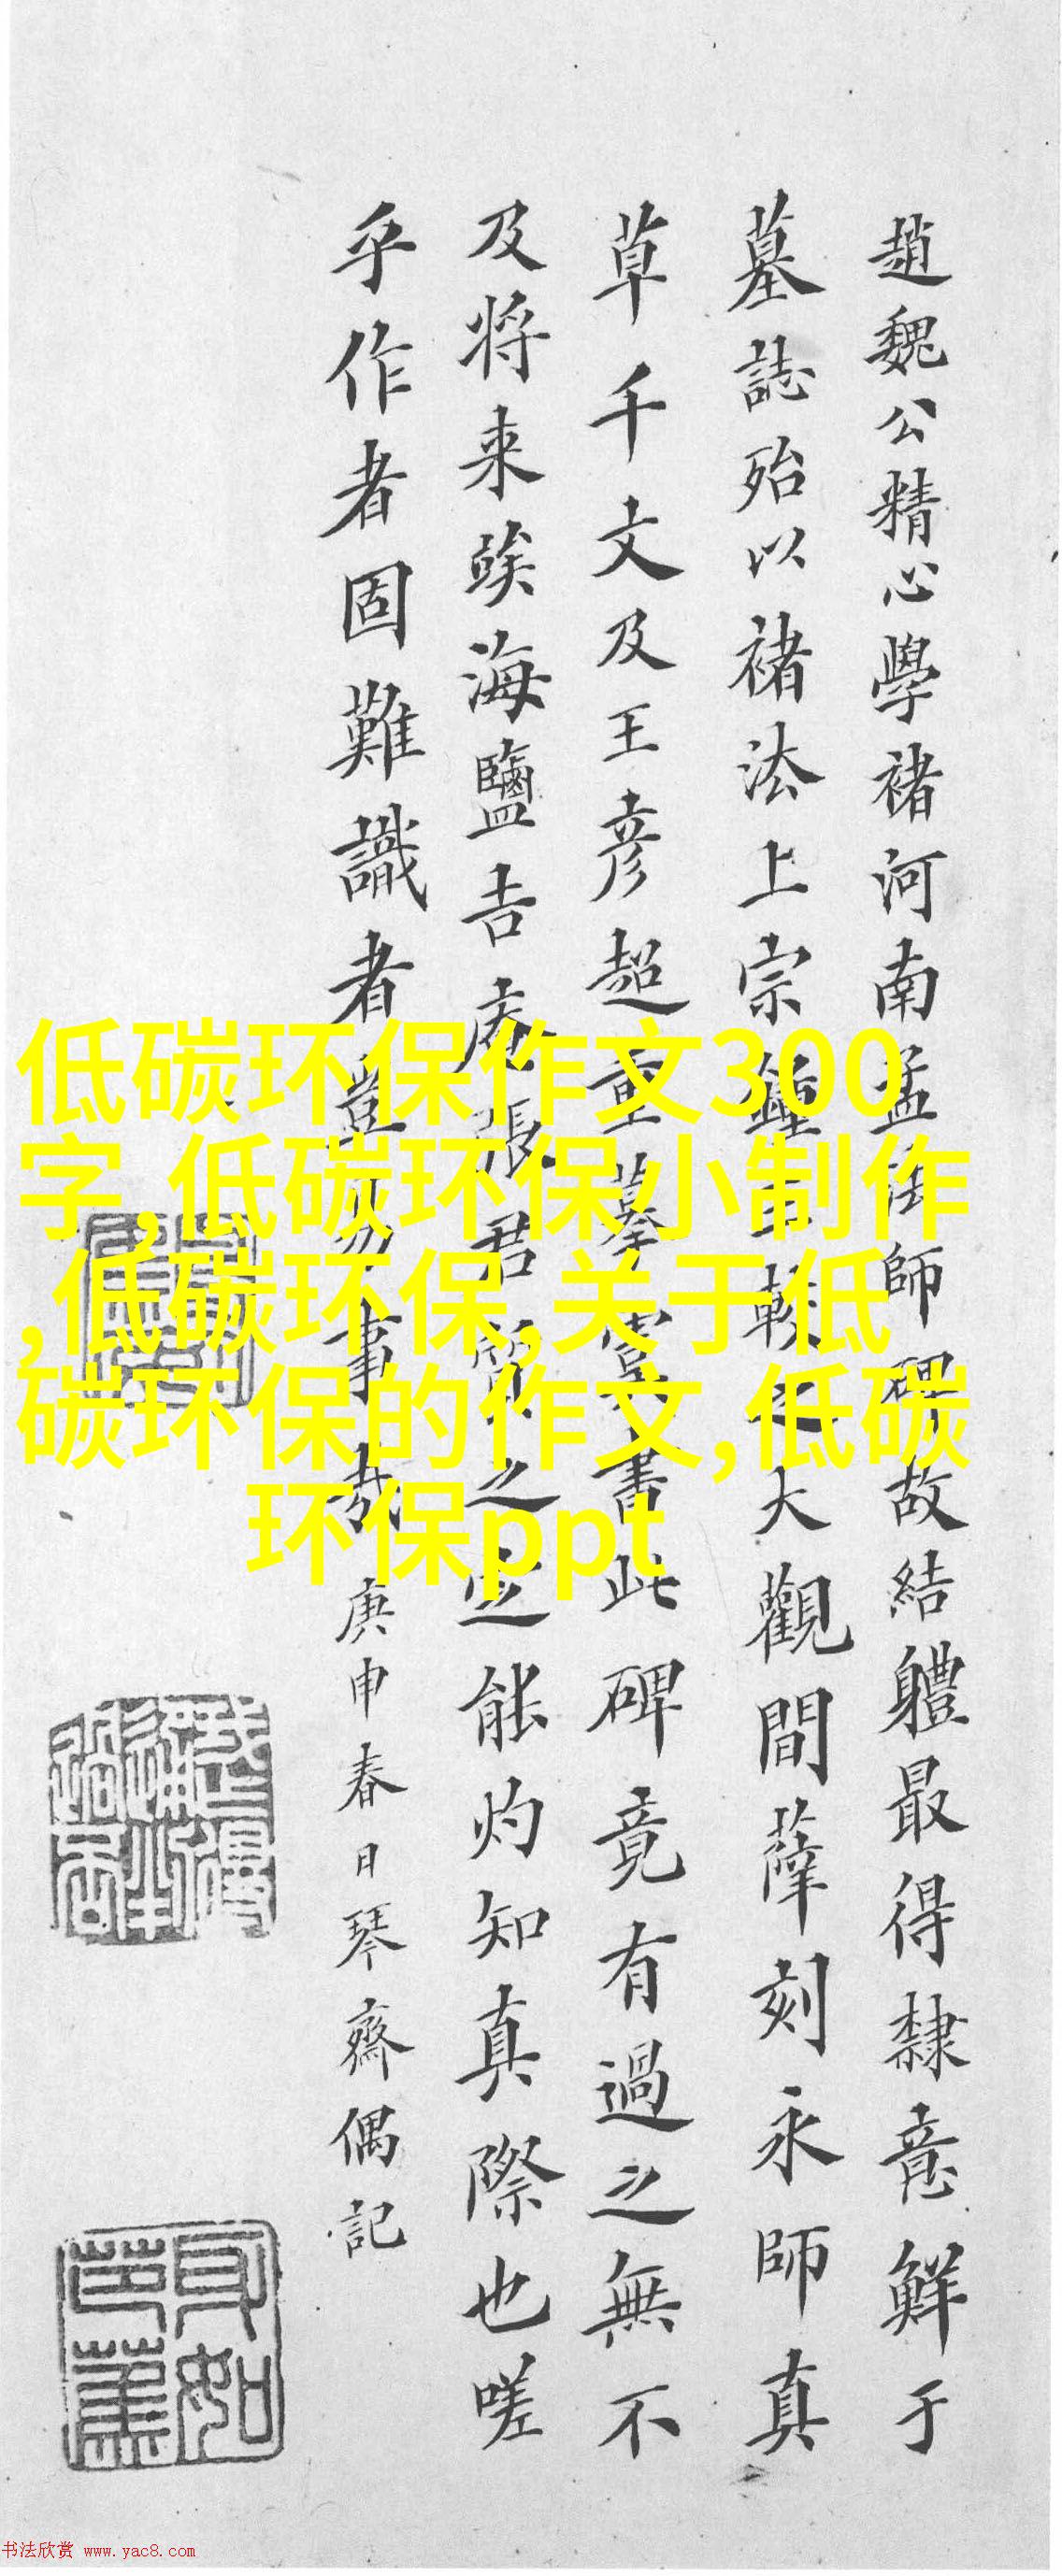 趙魏公精心學褚河南孟法師碑故結軆最得隸意鮮于
墓誌殆以褚法上宗鍾王軼之大觀間薛刻永師真
草千文及王彦超重摹虞書此碑竟有過之無不
及将来竢海鹽吉庵張君質之定能灼知真際也嗟
乎作者固難識者豈易事哉庚申春日琴齋偶記
低碳环保作文300
字,低碳环保小制作
,低碳环保,关于低
碳环保的作文,低碳
环保ppt
书法欣赏 www.yac8.com